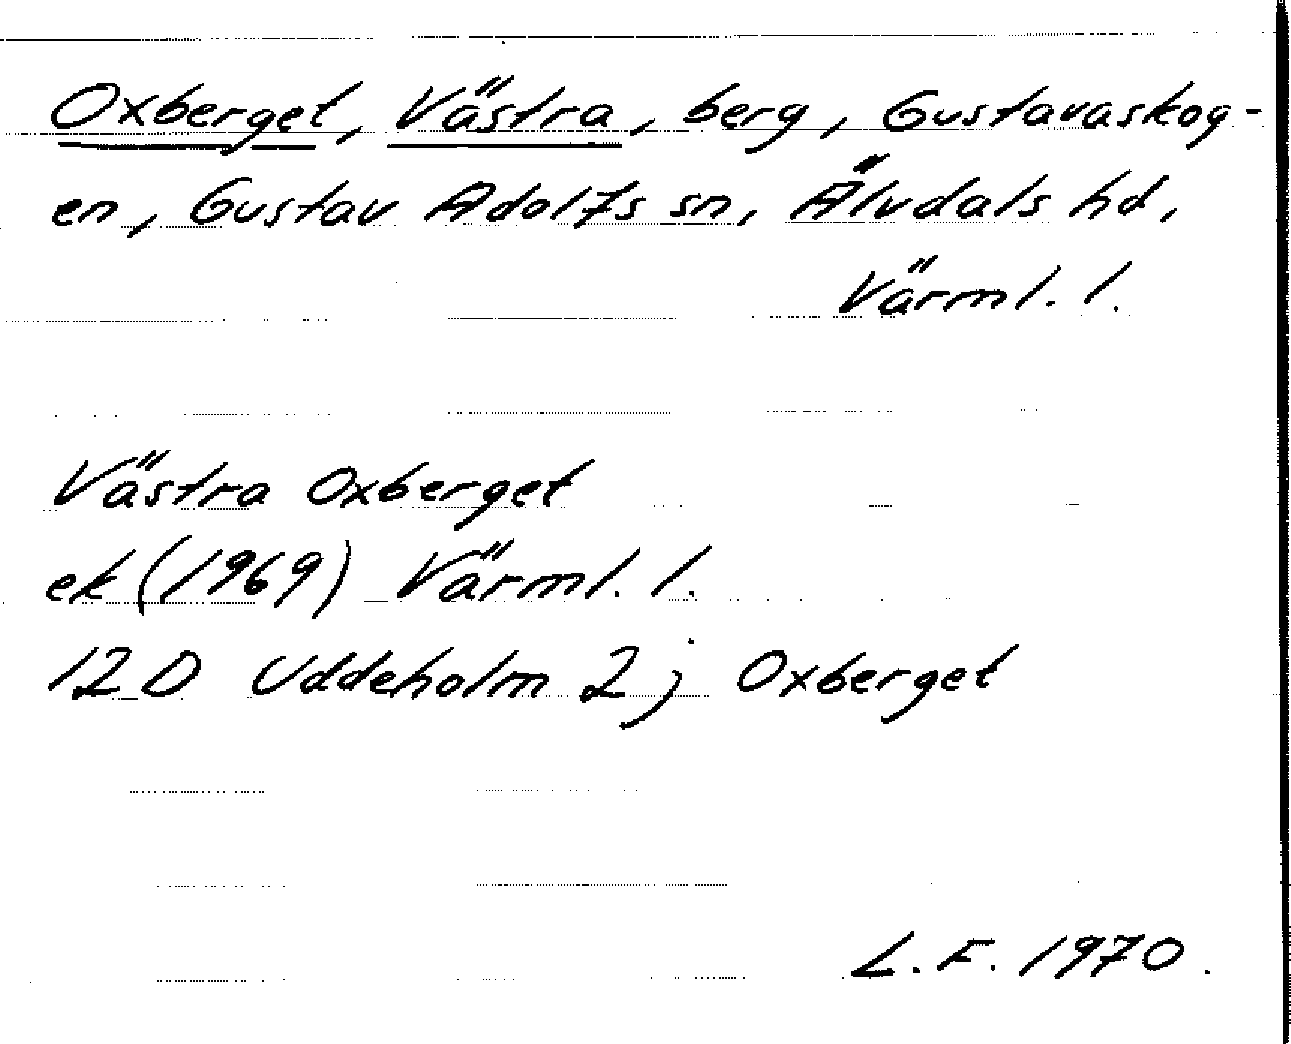 Oxberget, Västra, berg, Gustavaskog-
en, Gustav Adolfs sn, Älvdals hd,
Värml. l.
Västra Oxberget
ek (1969) Värml. l.
12 D Uddeholm 2 j Oxberget
L. F. 1970.